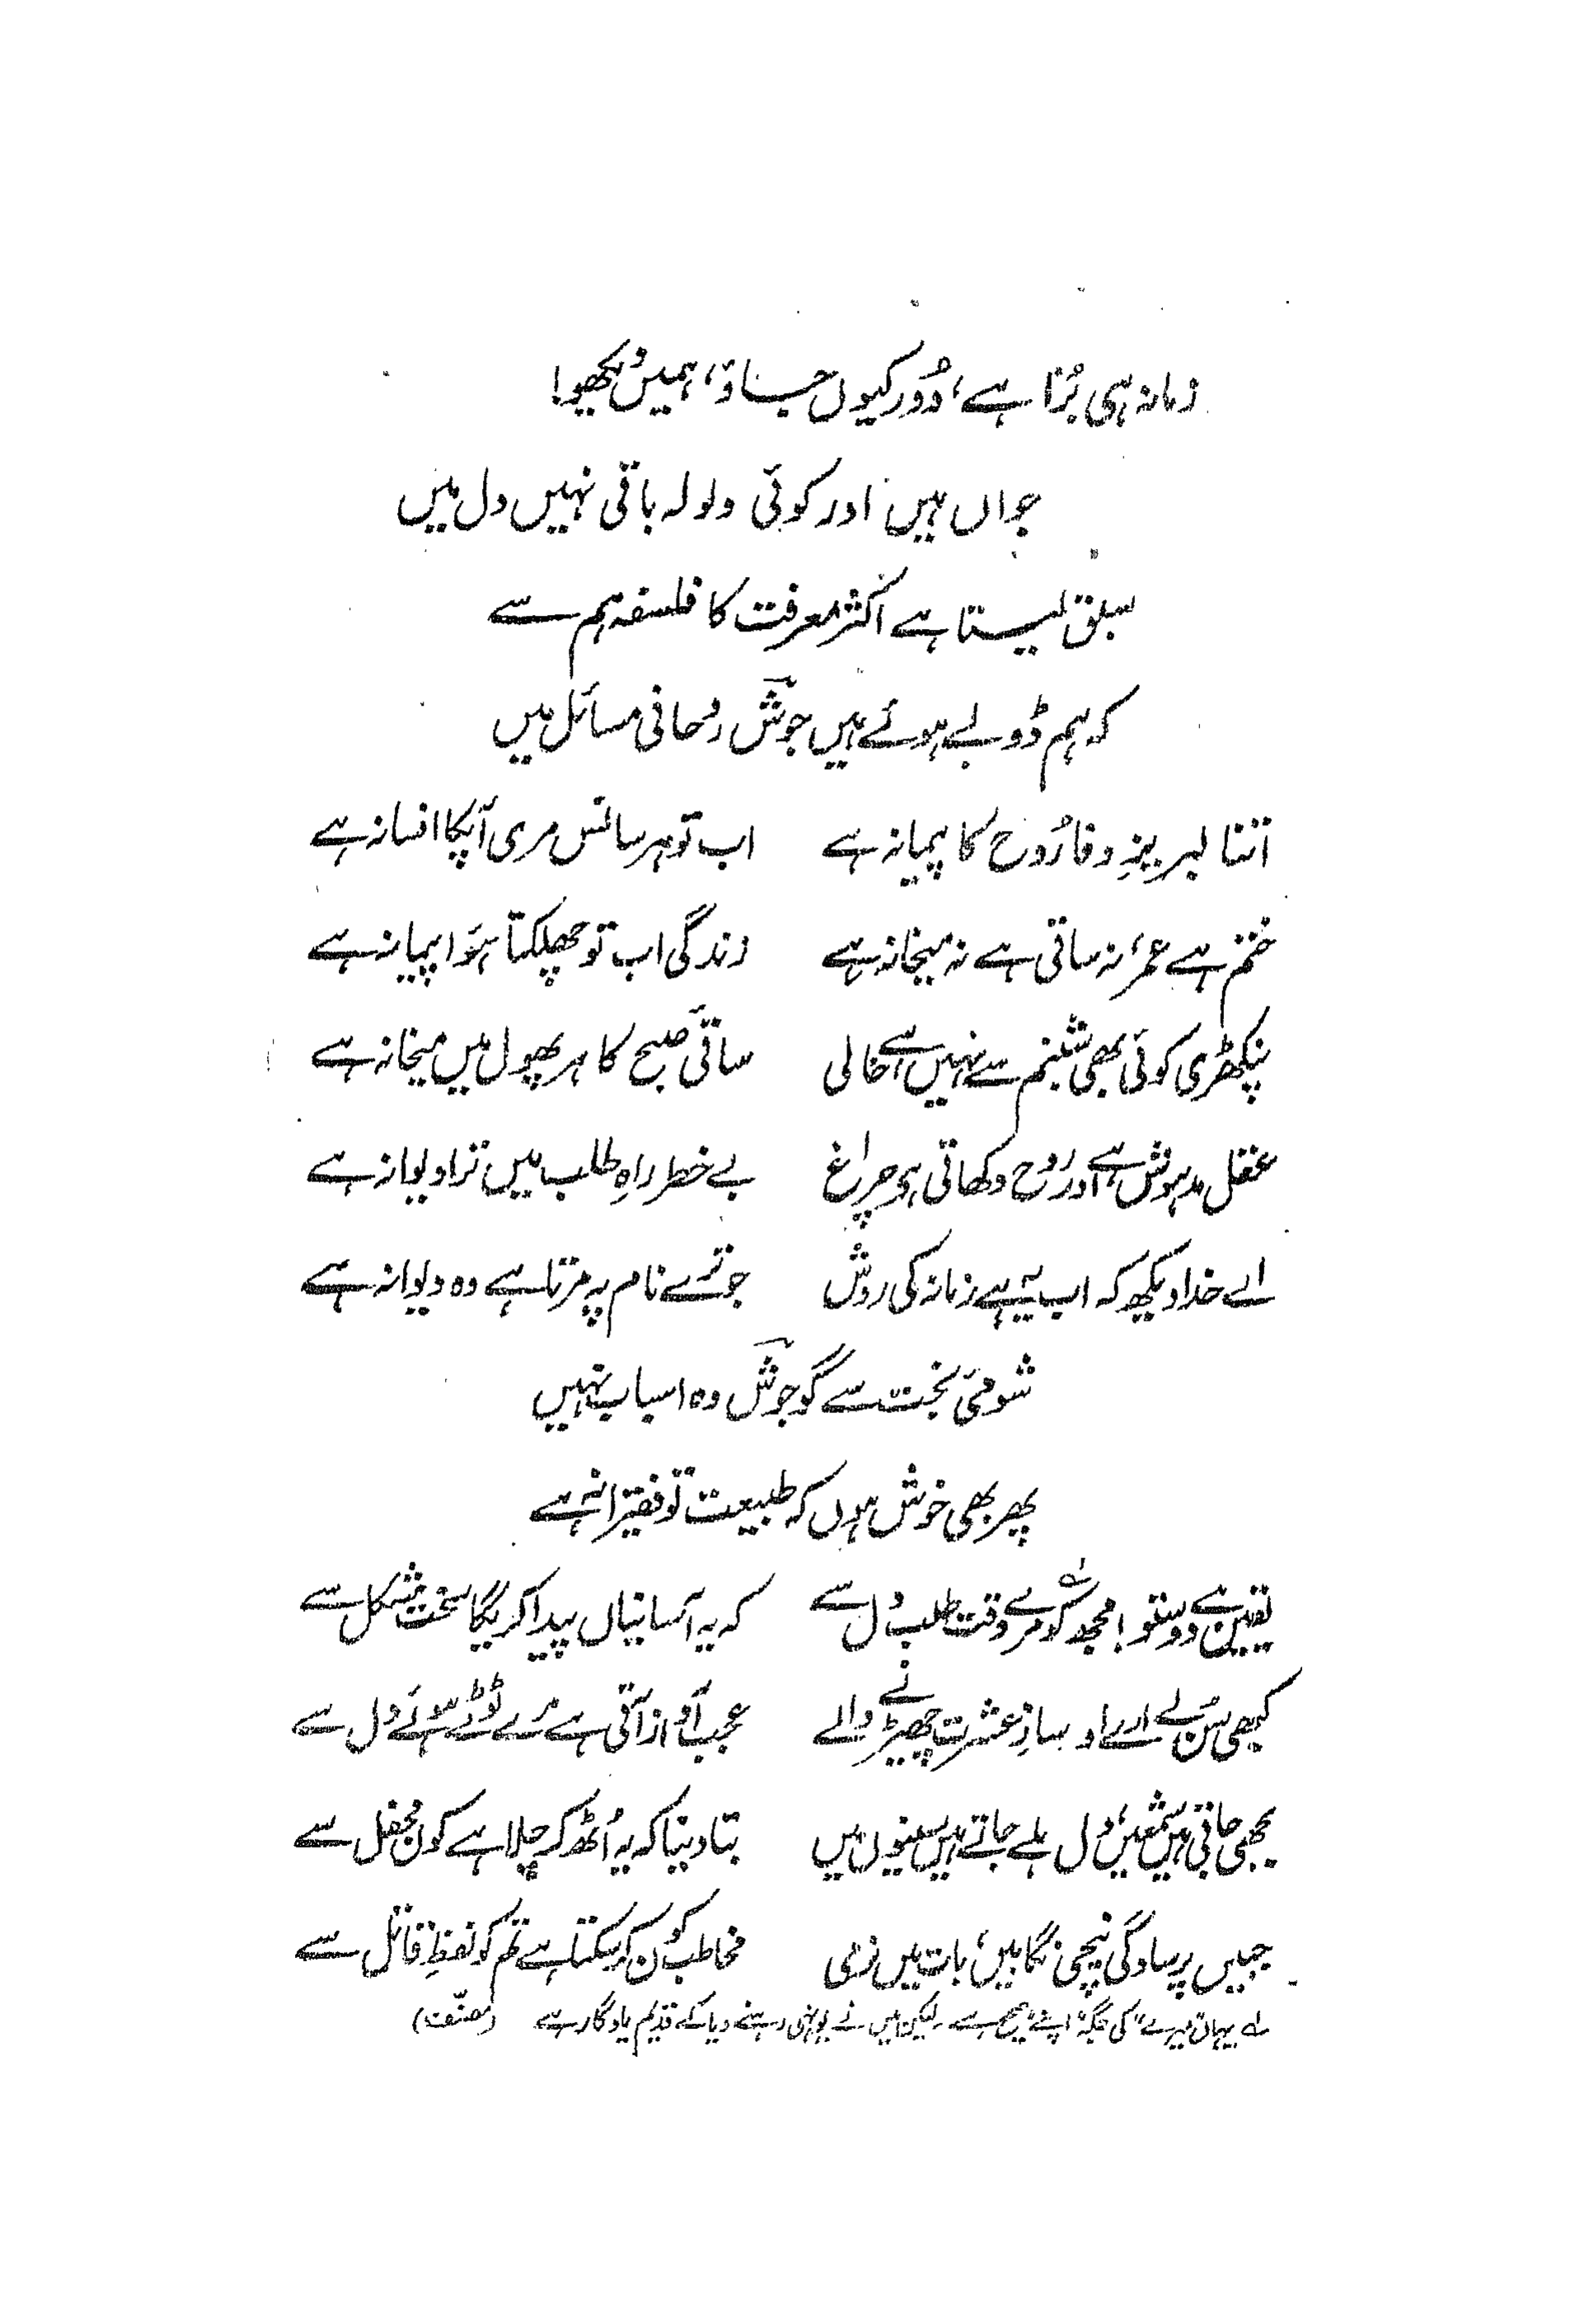 زمانہ ہی بُرا ہے، دُور کیوں جاؤ، ہمیں دیکھو!
جواں ہیں اور کوئی ولولہ باقی نہیں دل میں
سبق لیتا ہے اکثر معرفت کا فلسفہ ہم سے
کہ ہم ڈوبے ہوئے ہیں جوشؔ رُوحانی مسائل میں
اتنا لبریزِ وفا رُوح کا پیمانہ ہے اب تو ہر سانس مری آپکا افسانہ ہے
ختم ہے عمر، نہ ساقی ہے نہ میخانہ ہے زندگی اب تو چھلکتا ہوَا پیمانہ ہے
پنکھڑی کوئی بھی شبنم سے نہیں ہے خالی ساقیٔ صبح کا ہر پھول میں میخانہ ہے
عقل مدہوش ہے اور رُوح دکھاتی ہو چراغ بے خطر راہِ طلب میں ترا دیوانہ ہے
اے خدا دیکھ کہ اب یہ ہے زمانہ کی روش جو ترے نام پہ مرتا ہے وہ دیوانہ ہے
شومیٔ بخت سے گو جوشؔ وہ اسباب نہیں
پھر بھی خوش ہوں کہ طبیعت تو فقیرانہ ہے
یقیں ہے دوستو! مجھ کو مرے وقت طلب دل سے کہ یہ آسانیاں پیدا کریگا سخت مشکل سے
کبھی سُن لے ارے او سازِ عشرت چھیڑنے والے عجب آواز آتی ہے مرے ٹوٹے ہوئے دل سے
بجھی جاتی ہیں شمعیں، دل ہلے جاتے ہیں سینوں میں بتا دینا کہ یہ اُٹھ کر چلا ہے کون محفل سے
جبیں پر سادگی نیچی نگاہیں، بات میں نرمی مخاطب کون کر سکتا ہے تم کو لفظِ قاتل سے
لہ یہاں "میرے" کی جگہ "اپنے" صحیح ہے۔ لیکن میں نے یونہی رہنے دیا کہ قدیم یادگار ہے (مصنّف)